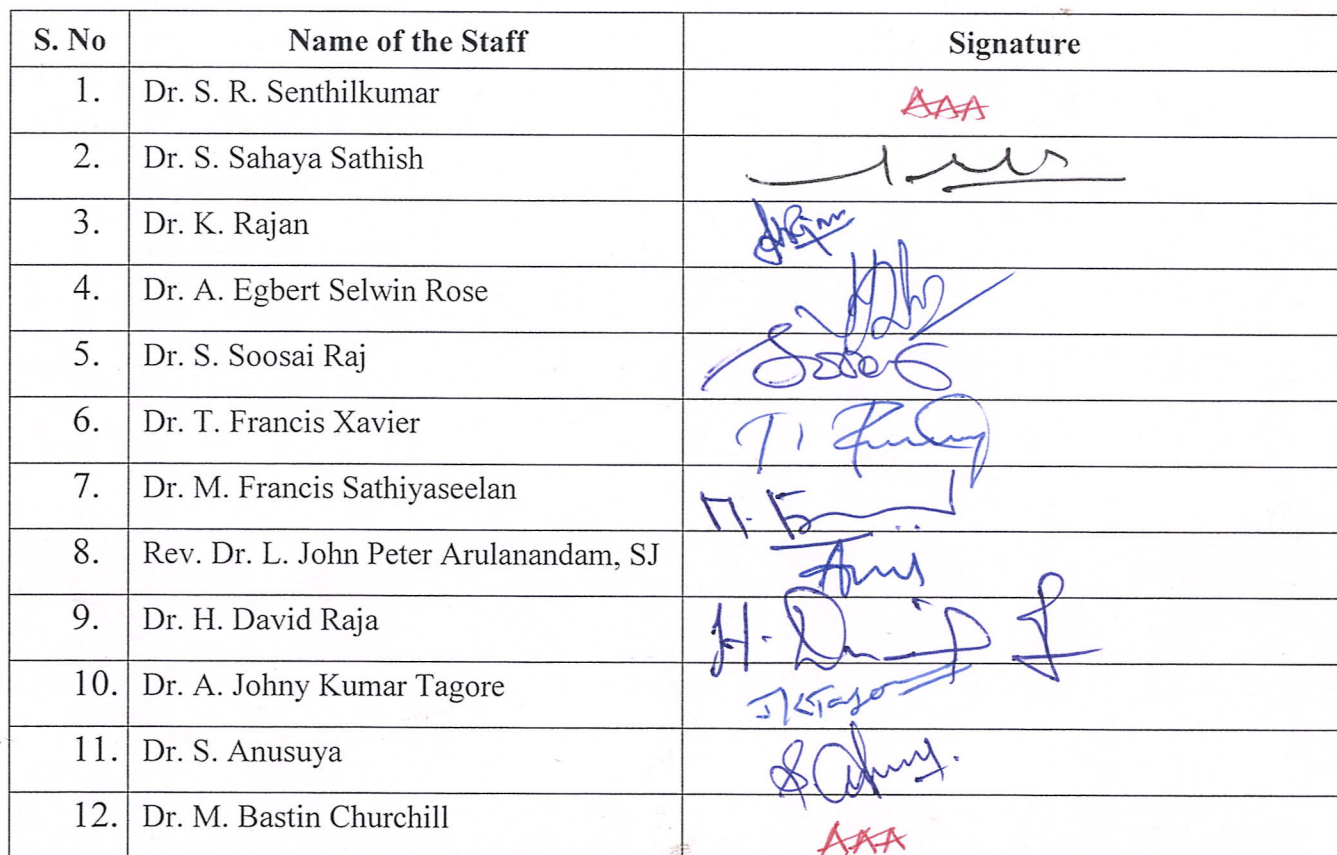 S. No Name of the Staff Signature
1. Dr. S. R. Senthilkumar AAA
2. Dr. S. Sahaya Sathish
3. Dr. K. Rajan
4. Dr. A. Egbert Selwin Rose
5. Dr. S. Soosai Raj
6. Dr. T. Francis Xavier
7. Dr. M. Francis Sathiyaseelan
8. Rev. Dr. L. John Peter Arulanandam, SJ
9. Dr. H. David Raja
10. Dr. A. Johny Kumar Tagore
11. Dr. S. Anusuya
12. Dr. M. Bastin Churchill AAA